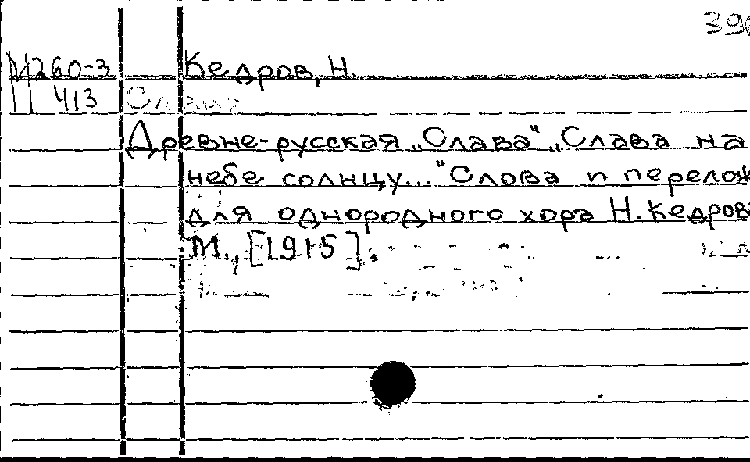 396
М260-3 Кедров, Н.
П 413 Слава
Древне-русская „Слава" „Слава на
небе солнцу..." Слова и перелож
для однородного хора Н. Кедров
М., [1915].